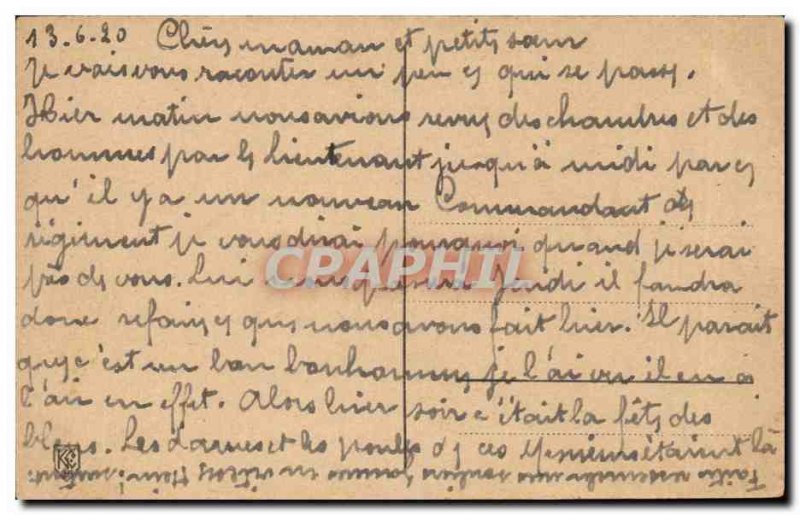 13.6.20 Chère maman et petite sœur
Je vais vous raconter un peu ce qui se passe.
Hier matin nous avions revue des chambres et des
hommes par le lieutenant jusqu'à midi parce
qu'il y a un nouveau Commandant de
régiment je vous dirai pourquoi quand je serai
près de vous. Lui jeudi il faudra
donc refaire ce que nous avons fait hier. Il parait
que c'est un bon bonhomme je l'ai vu il en a
l'air en effet. Alors hier soir c'était la fête des
bleus. Les dames et les poules de ces Messieurs étaient là
CPARPHIL